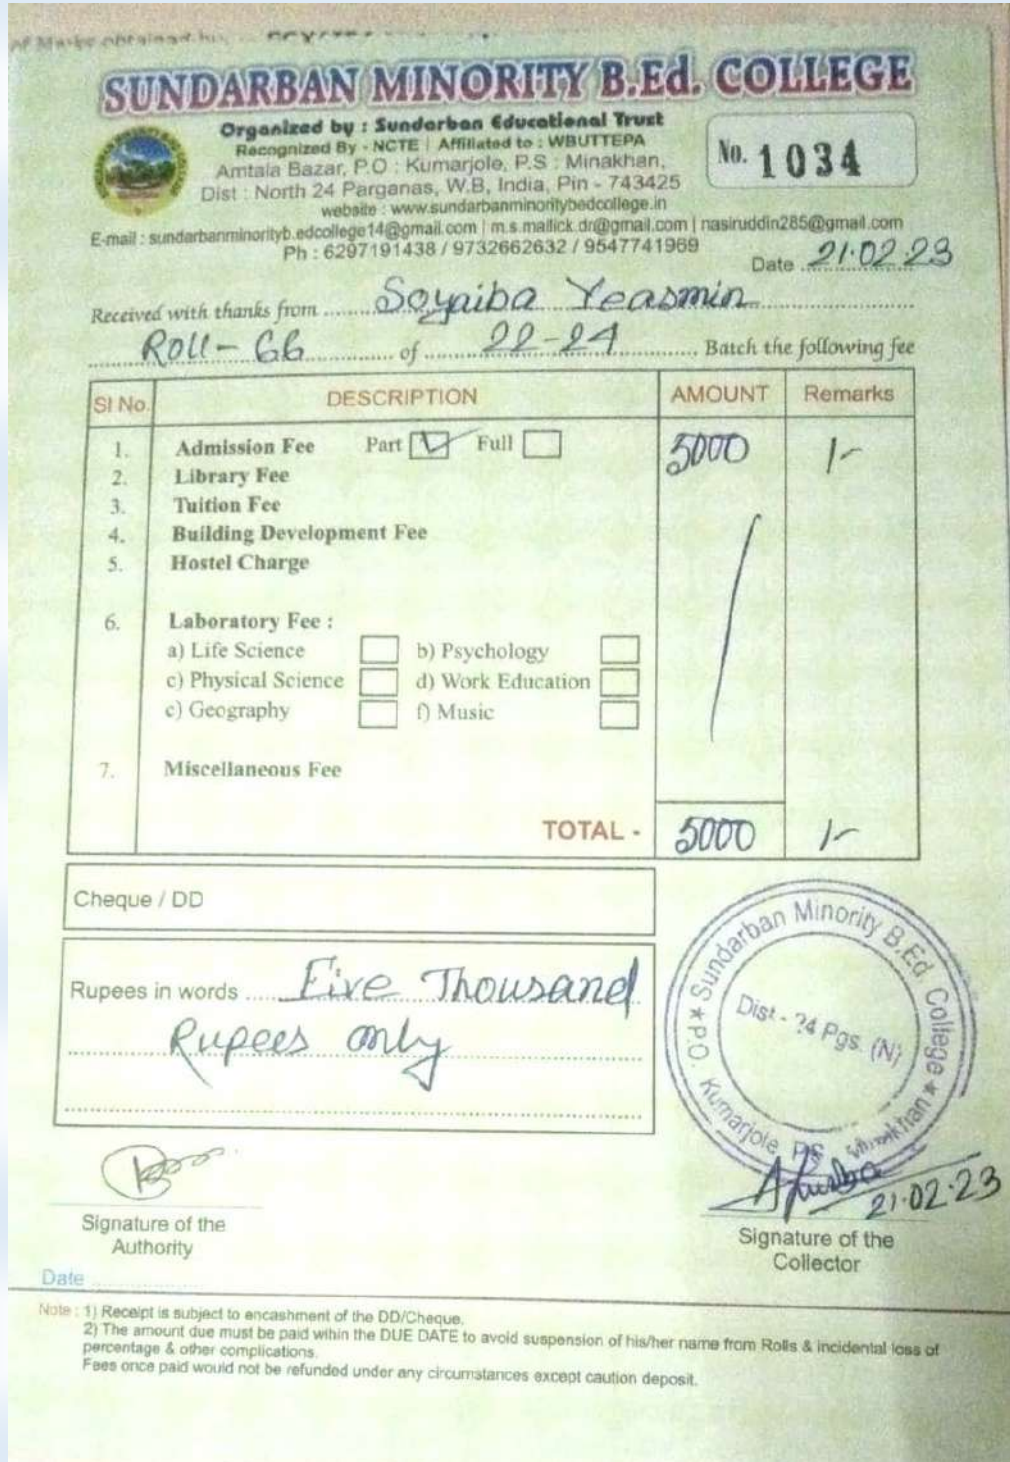 of Marks obtained by
SUNDARBAN MINORITY B.Ed. COLLEGE
Organized by : Sundarban Educational Trust
Recognized By - NCTE | Affiliated to : WBUTTEPA
Amtala Bazar, P.O : Kumarjole, P.S : Minakhan,
Dist : North 24 Parganas, W.B, India, Pin - 743425
website : www.sundarbanminoritybedcollege.in
E-mail : sundarbanminorityb.edcollege14@gmail.com | m.s.mallick.dr@gmail.com | nasiruddin285@gmail.com
Ph : 6297191438 / 9732662632 / 9547741969
No. 1034
Date 21.02.23
Received with thanks from Soyaiba Yeasmin
Roll- 66 of 22-24 Batch the following fee
Sl No. DESCRIPTION AMOUNT Remarks
1. Admission Fee Part Full 5000 /-
2. Library Fee
3. Tuition Fee
4. Building Development Fee
5. Hostel Charge
6. Laboratory Fee :
a) Life Science b) Psychology
c) Physical Science d) Work Education
c) Geography f) Music
7. Miscellaneous Fee
TOTAL - 5000 /-
Cheque / DD
Rupees in words Five Thousand
Rupees only
Sundarban Minority B.Ed. College
P.O. Kumarjole P.S.
Dist - 24 Pgs. (N)
21.02.23
Signature of the
Authority
Signature of the
Collector
Date
Note : 1) Receipt is subject to encashment of the DD/Cheque.
2) The amount due must be paid wihin the DUE DATE to avoid suspension of his/her name from Rolls & incidental loss of
percentage & other complications.
Fees once paid would not be refunded under any circumstances except caution deposit.